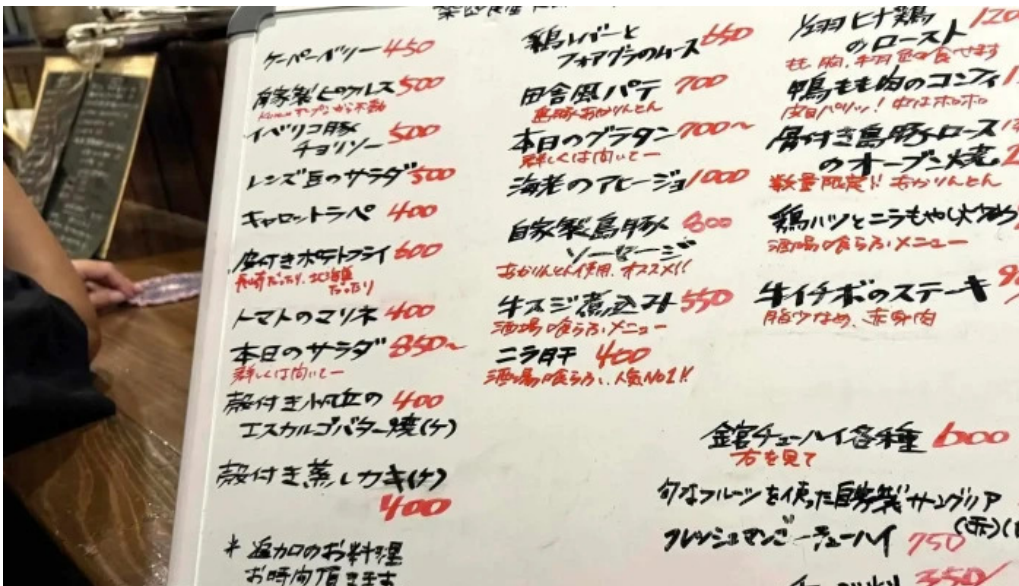 ケーパーベリー 450
自家製ピクルス 500
イベリコ豚
チョリソー 500
レンズ豆のサラダ 500
キャロットラペ 400
皮付きポテトフライ 600
長崎だったり、北海道
だったり
トマトのマリネ 400
本日のサラダ 850〜
詳しくは聞いてー
殻付き帆立の 400
エスカルゴバター焼(ケ)
殻付き蒸しカキ(ケ)
400
お料理
お時間頂きます
鶏レバーと
フォアグラのムース 650
田舎風パテ 700
島豚あかりんとん
本日のグラタン 700〜
詳しくは聞いてー
海老のアヒージョ 1000
自家製島豚 800
ソーセージ
あかりんとん使用、オススメ!!
牛スジ煮込み 550
酒場喰らふメニュー
ニラ肝 400
酒場喰らふ、人気No1!!
ヒナ鶏
のロースト
もも、胸、
鴨もも肉のコンフィ
皮目パリッ!中はホロホロ
骨付き島豚ロース
のオーブン焼
数量限定!!あかりんとん
鶏ハツとニラもやし
酒場喰らふメニュー
牛イチボのステーキ
脂少なめ、赤身肉
金宮チューハイ各種 600
右を見て
旬なフルーツを使った自家製サングリア
(赤)
フレッシュマンゴーチューハイ 750
350/